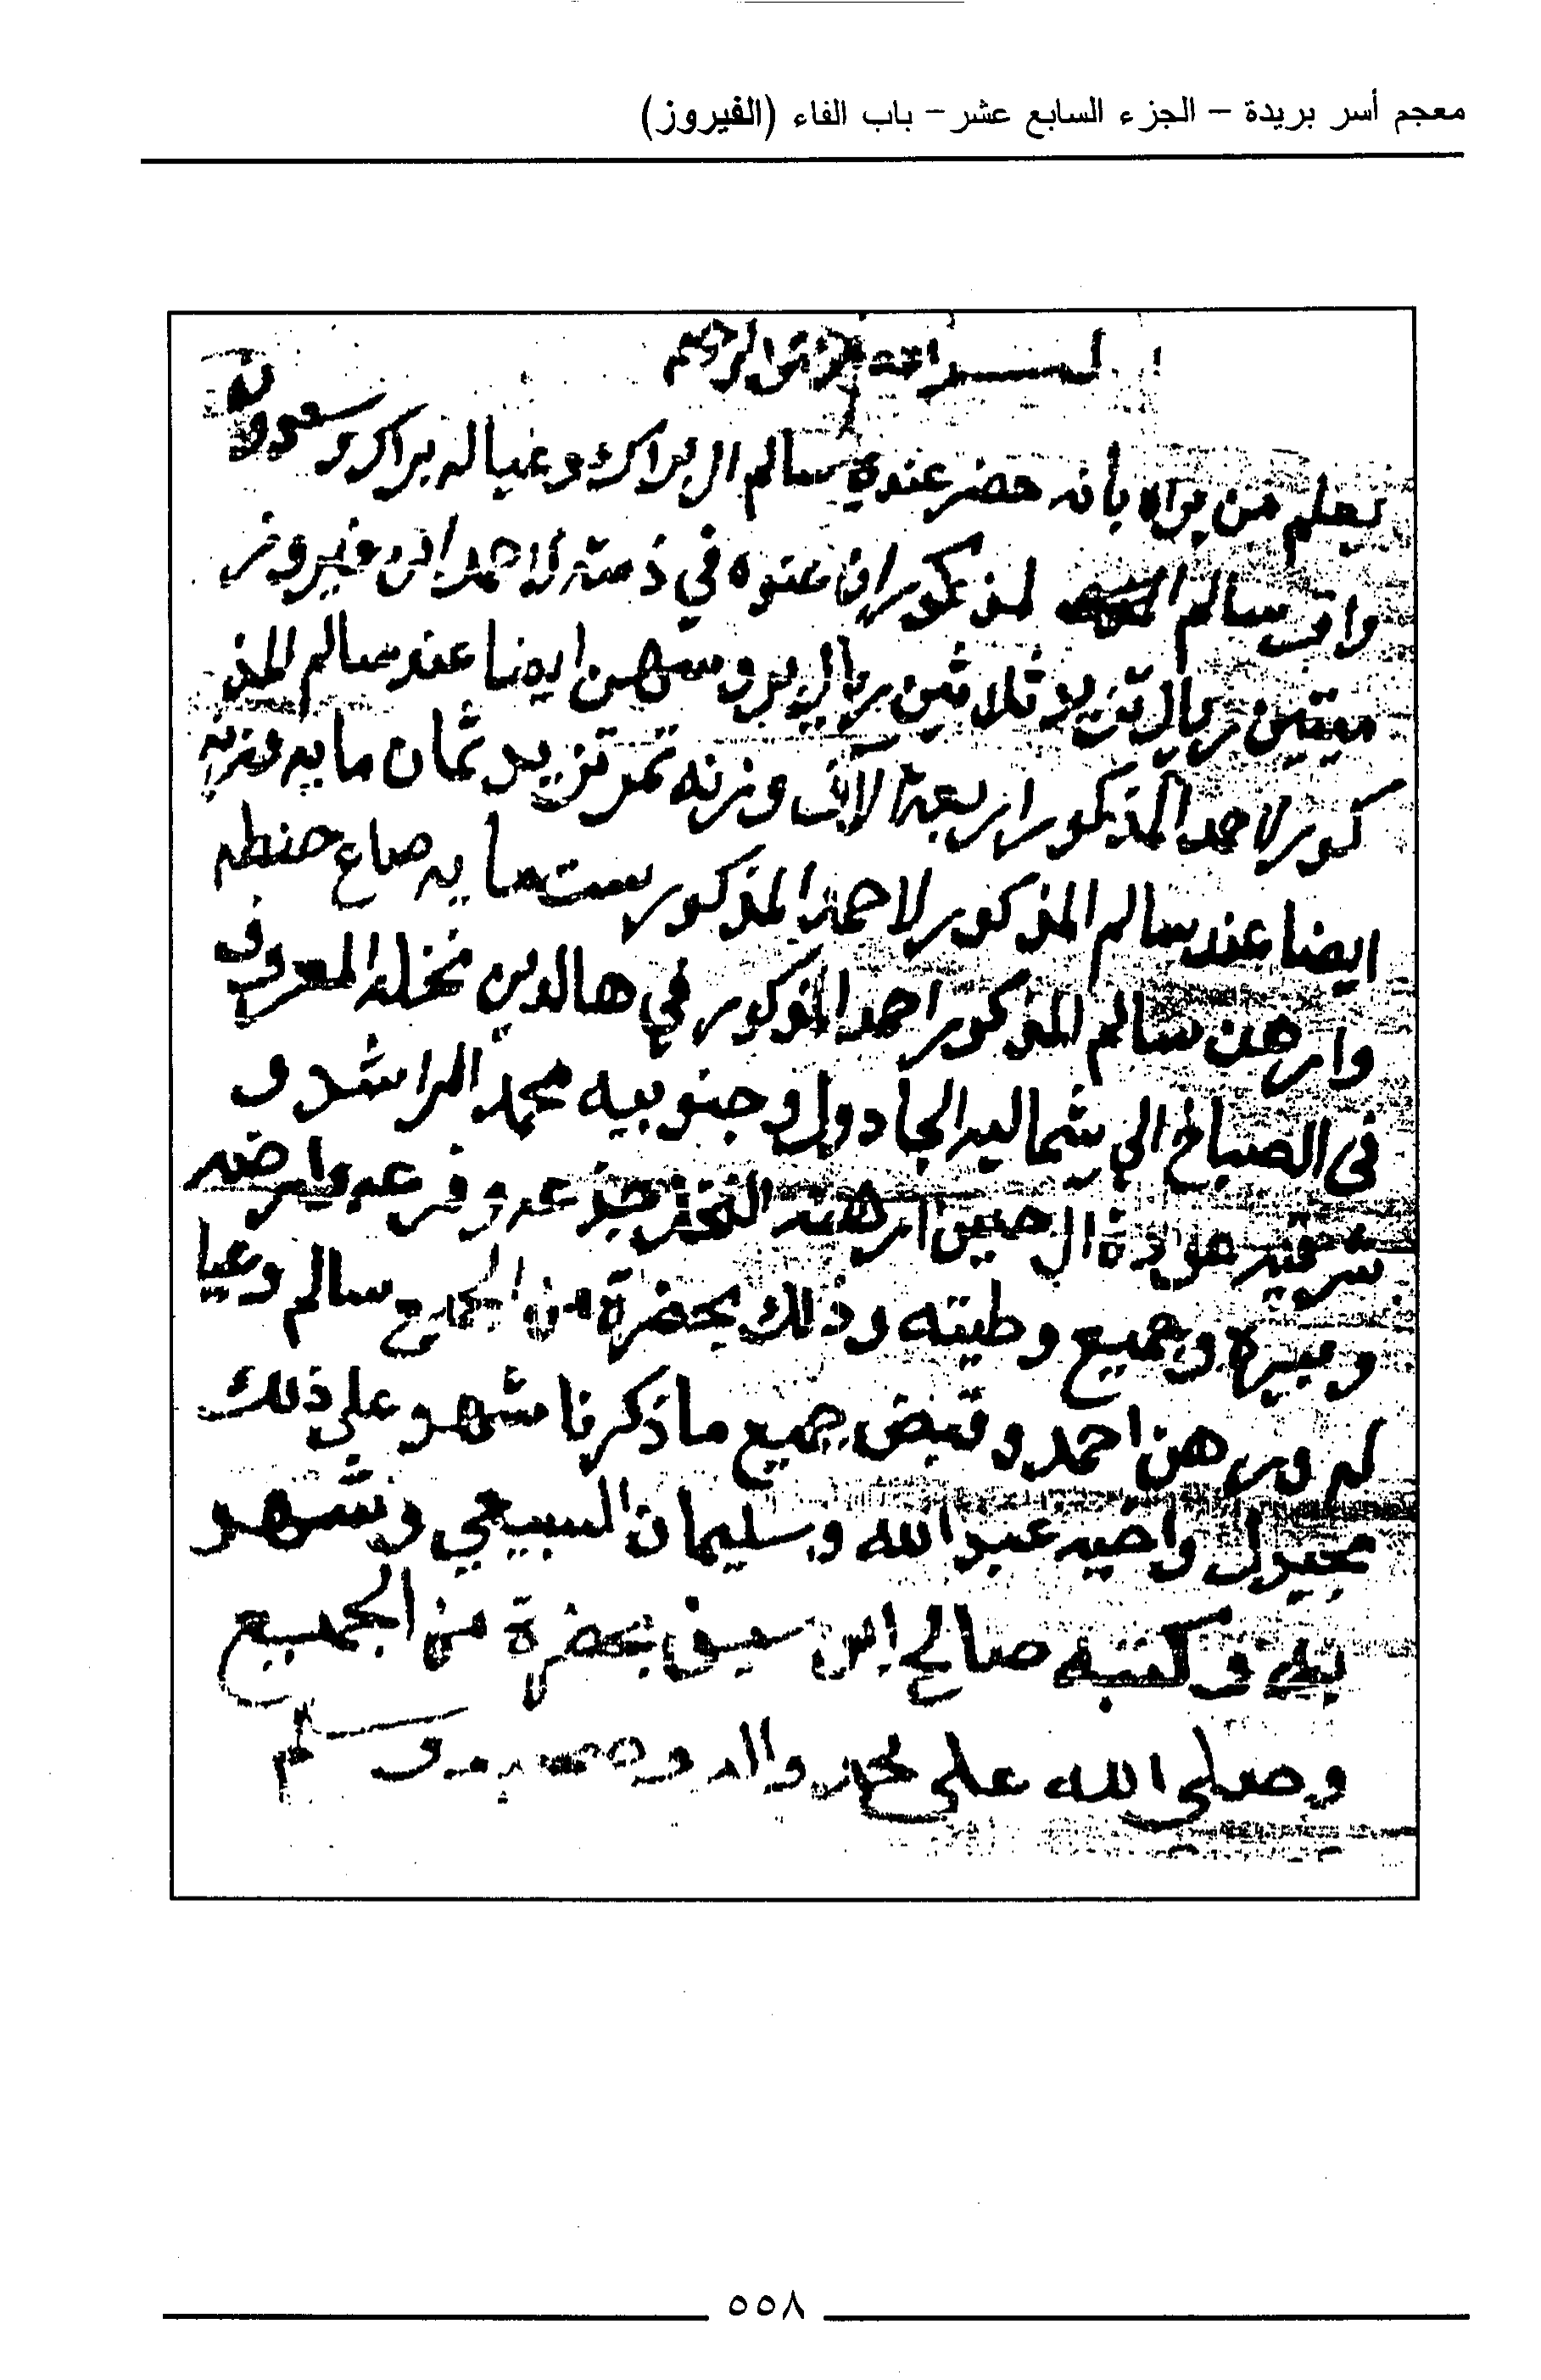 معجم أسر بريدة – الجزء السابع عشر – باب الفاء (الفيروز)
بسم الله الرحمن الرحيم
يعلم من يراه بأنه حضر عندي سالم ال براك وعياله براك وسعود
واقر سالم المذكور ان عنده في ذمته لاحمد ابن فيروز
ميتين ريال تزيد ثلاثين ريال ايضا عند سالم المذ
كور لاحمد المذكور اربعة الآف وزنه تمر تزيد ثمان مايه وزنه
ايضا عند سالم المذكور لاحمد المذكور ست مايه صاع حنطه
وارهن سالم المذكور احمد المذكور في هالدين نخله المعروف
في الصباخ الي شماليه الجادول وجنوبيه محمد الراشد و
شرقيه ال حسين ارهنه النخل جذعه وفرعه وارضه
وبيره وجميع وطيته وذلك بحضرة من الجميع سالم وعيا
له ورهن احمد وقبض جميع ماذكرنا شهد على ذلك
واخيه عبدالله وسليمان السبيعي وشهد
به وكتبه صالح ابن سيف بحضرة من الجميع
وصلى الله على محمد واله وصحبه وسلم
٥٥٨